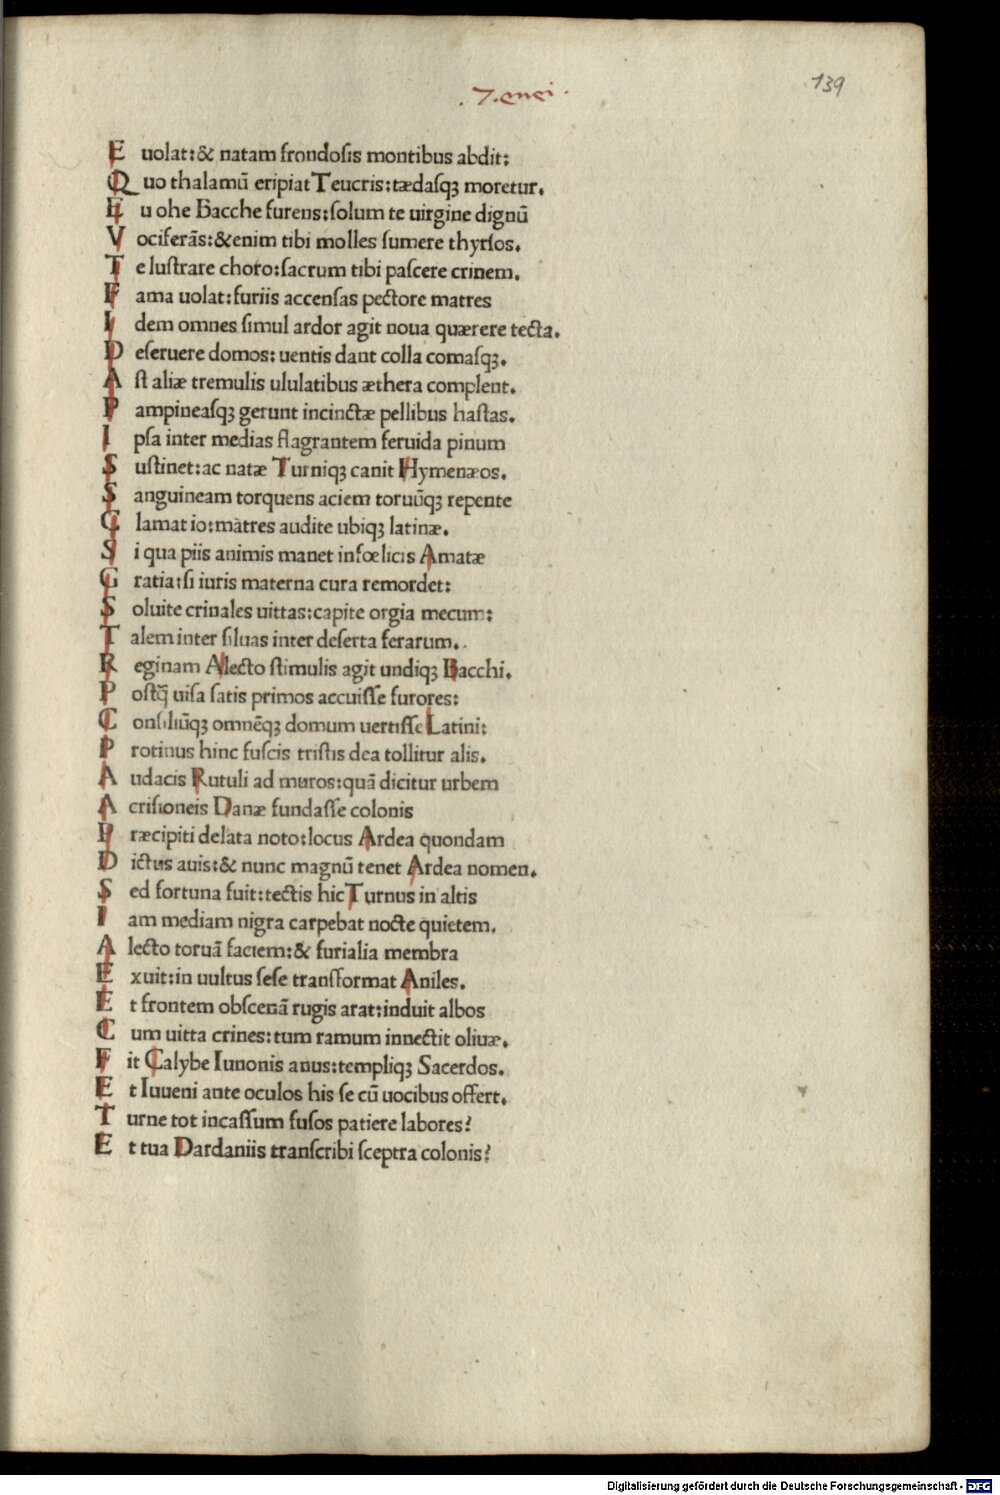 .7.enei.
139
E uolat:& natam frondoſis montibus abdit:
Q uo thalamū eripiat Teucris:tædaſqꝫ moretur.
E u ohe Bacche furens:ſolum te uirgine dignū
V ociferās:&enim tibi molles ſumere thyrſos.
T e luſtrare choro:ſacrum tibi paſcere crinem.
F ama uolat:furiis accenſas pectore matres
I dem omnes ſimul ardor agit noua quærere tecta.
D eſeruere domos: uentis dant colla comaſqꝫ.
A ſt aliæ tremulis ululatibus æthera complent.
P ampineaſqꝫ gerunt incinctæ pellibus haſtas.
I pſa inter medias flagrantem feruida pinum
S uſtinet:ac natæ Turniqꝫ canit Hymenæos.
S anguineam torquens aciem toruūqꝫ repente
C lamat io:matres audite ubiqꝫ latinæ.
S i qua piis animis manet infœlicis Amatæ
G ratia:ſi iuris materna cura remordet:
S oluite crinales uittas:capite orgia mecum:
T alem inter ſiluas inter deſerta ferarum.
R eginam Alecto ſtimulis agit undiqꝫ Bacchi.
P oſtq̄ uiſa ſatis primos accuiſſe furores:
C onſiliūqꝫ omnēqꝫ domum uertiſſe Latini:
P rotinus hinc fuſcis triſtis dea tollitur alis.
A udacis Rutuli ad muros:quā dicitur urbem
A criſioneis Danæ fundaſſe colonis
P ræcipiti delata noto:locus Ardea quondam
D ictus auis:& nunc magnū tenet Ardea nomen.
S ed fortuna fuit:tectis hic Turnus in altis
I am mediam nigra carpebat nocte quietem.
A lecto toruā faciem:& furialia membra
E xuit:in uultus ſeſe tranſformat Aniles.
E t frontem obſcenā rugis arat:induit albos
C um uitta crines:tum ramum innectit oliuæ.
F it Calybe Iunonis anus:templiqꝫ Sacerdos.
E t Iuueni ante oculos his ſe cū uocibus offert.
T urne tot incaſſum fuſos patiere labores?
E t tua Dardaniis tranſcribi ſceptra colonis?
Digitalisierung gefördert durch die Deutsche Forschungsgemeinschaft - DFG